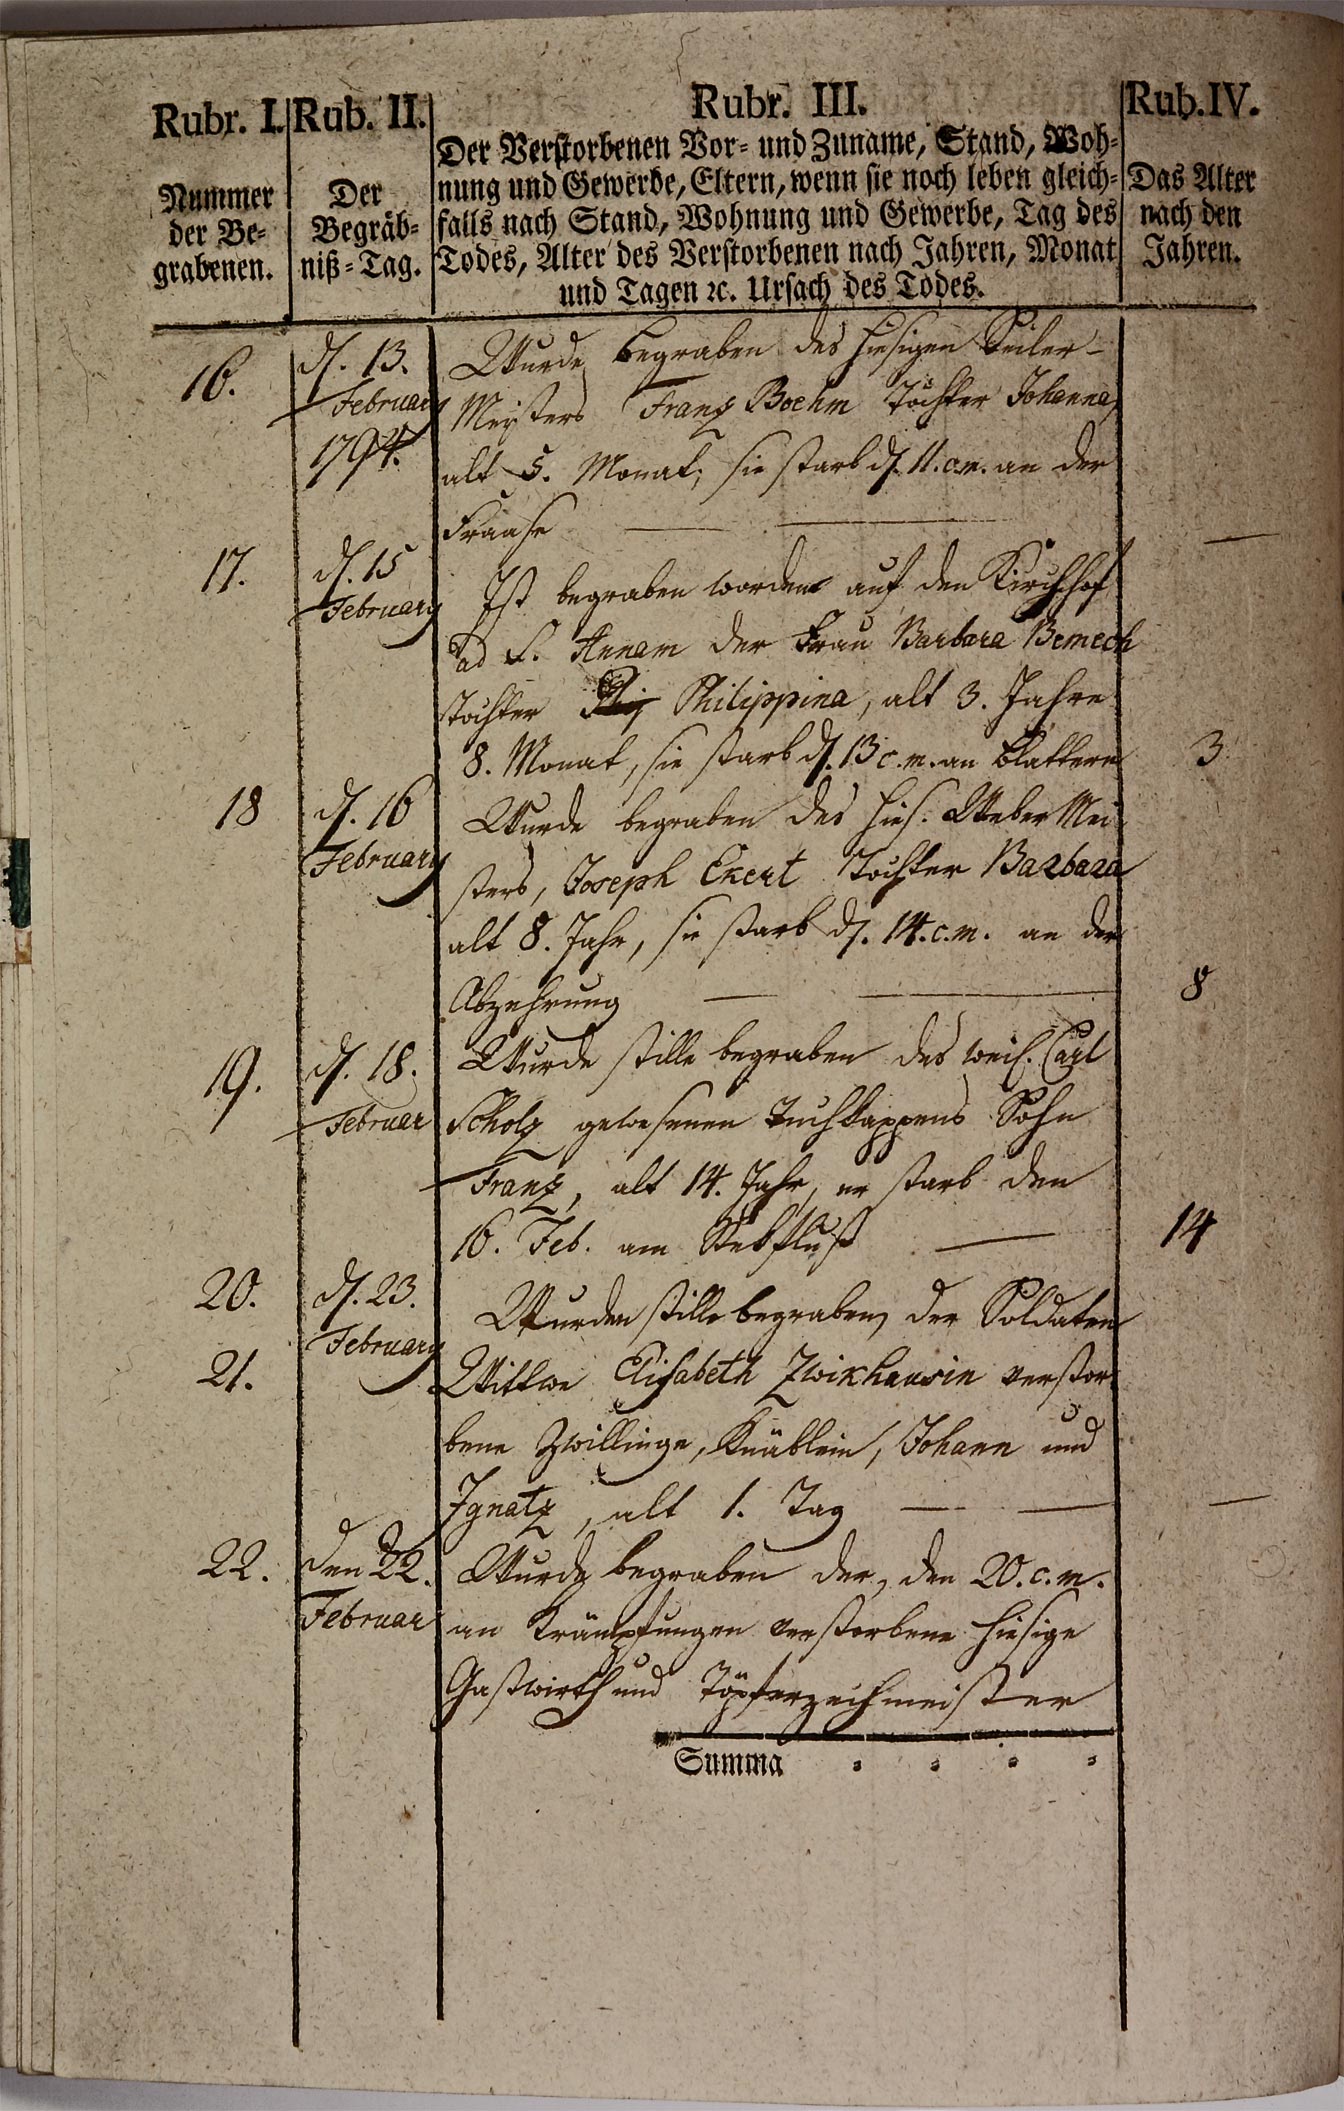 Rubr. I. Rub. II. Rubr. III. Rub. IV.
Nummer der Be-
grabenen.
Der
Begräb-
niß-Tag.
Der Verstorbenen Vor- und Zuname, Stand, Woh-
nung und Gewerbe, Eltern, wenn sie noch leben gleich-
falls nach Stand, Wohnung und Gewerbe, Tag des
Todes, Alter des Verstorbenen nach Jahren, Monat
und Tagen ꝛc. Ursach des Todes.
Das Alter
nach den
Jahren.
16.
d. 13.
February
1794.
Wurde begraben des hiesigen Seiler-
Meisters Franz Boehm Tochter Johanna,
alt 5. Monat; sie starb d. 11. c.m. an der
Fraase
17.
d. 15
February
Ist begraben worden auf den Kirchhof
ad S. Annam der Frau Barbara Bemech
Tochter Philippina, alt 3. Jahre
8. Monat, sie starb d. 13 c.m. an Blattern
3
18
d. 16
February
Wurde begraben des hies. Weber Mei
sters, Joseph Ekert Tochter Barbara
alt 8. Jahr, sie starb d. 14. c.m. an der
Abzehrung
8
19.
d. 18.
Februar
Wurde stille begraben des weil. Carl
Scholz gewesenen Sohn
Franz, alt 14. Jahr, er starb den
16. Feb. am
14
20.
d. 23.
February
21.
Wurden stille begraben, der Soldaten
Wittwe Elisabeth Zwikhausin verstor
bene Zwillinge, Knäblein, Johann und
Ignatz, alt 1. Tag
22.
den 22.
Februar
Wurde begraben der, den 20. c.m.
an Krämpfungen verstorbene hiesige
Gastwirth und Töpferzechmeister
Summa